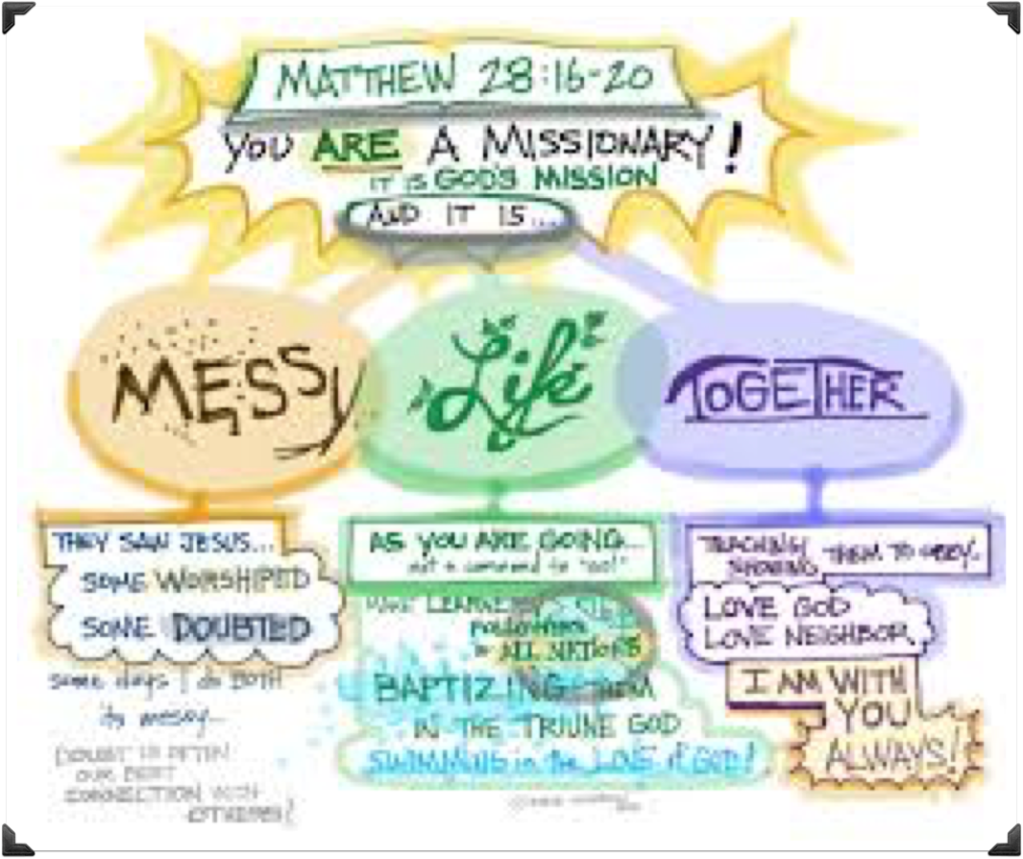 MATTHEW 28:16-20
YOU ARE A MISSIONARY!
IT IS GOD'S MISSION
AND IT IS...
MESSY
Life
TOGETHER
THEY SAW JESUS...
SOME WORSHIPED
SOME DOUBTED
some days I do BOTH
its messy...
DOUBT IS OFTEN
OUR BEST
CONNECTION WITH
OTHERS!
AS YOU ARE GOING...
not a command to "GO!"
MAKE LEARNERS
FOLLOWERS
ALL NATIONS
BAPTIZING THEM
IN THE TRIUNE GOD
SWIMMING in the LOVE of GOD!
TEACHING/
SHOWING THEM TO OBEY.
LOVE GOD
LOVE NEIGHBOR
I AM WITH
YOU
ALWAYS!